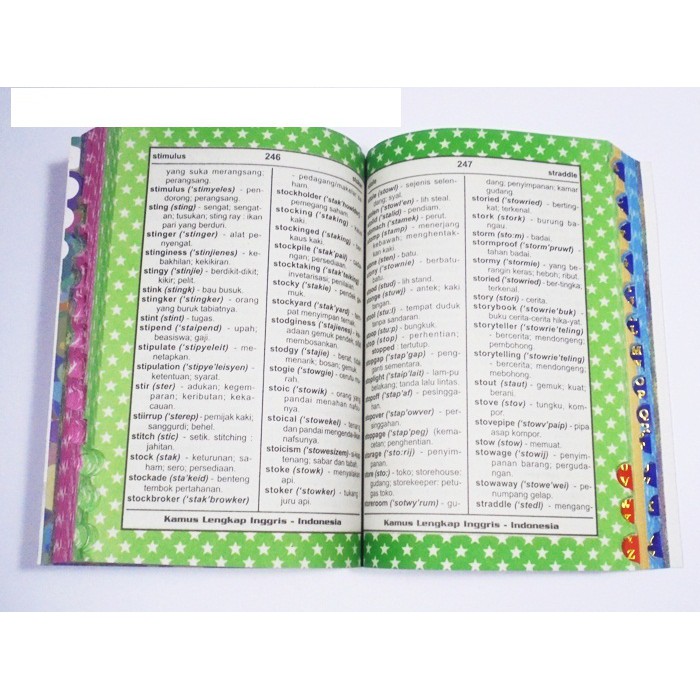 stimulus 246
yang suka merangsang;
perangsang.
stimulus ('stimyeles) - pen-
dorong; perangsang.
sting (sting) - sengat; sengat-
an; tusukan; sting ray : ikan
pari yang berduri.
stinger ('stinger) - alat pe-
nyengat.
stinginess ('stinjienes) - ke-
bakhilan; kekikiran.
stingy ('stinjie) - berdikit-dikit;
kikir; pelit.
stink (stingk) - bau busuk.
stingker ('stingker) - orang
yang buruk tabiatnya.
stint (stint) - tugas.
stipend ('staipend) - upah;
beasiswa; gaji.
stipulate ('stipyeleit) - me-
netapkan.
stipulation ('stipye'leisyen) -
ketentuan; syarat.
stir (ster) - adukan; kegem-
paran; keributan; keka-
cauan.
stiirrup ('sterep) - pemijak kaki;
sanggurdi; behel.
stitch (stic) - setik. stitching :
jahitan.
stock (stak) - keturunan; sa-
ham; sero; persediaan.
stockade (sta'keid) - benteng
tembok pertahanan.
stockbroker ('stak'browker)
- pedagang/makelar
ham.
stockholder ('stak'howlder)
pemegang saham.
stocking ('staking)
kaki.
stockinged ('staking)
kaus kaki.
stockpile ('stak'pail)
ngan; persediaan.
stocktaking ('stak'teiking)
invetarisasi; penilaian
stocky ('stakie) - pendek
muk.
stockyard ('stak'yard) - tem-
pat menyimpan ternak.
stodginess ('stajienes) - ke-
adaan gemuk pendek,
membosankan.
stodgy ('stajie) - berat, tidak
menarik; bosan; gemuk.
stogie ('stowgie) - cerutu mu-
rah.
stoic ('stowik) - orang yang
pandai menahan nafsu-
nya.
stoical ('stowekel) - tenang
dan pandai mengendalikan
nafsunya.
stoicism ('stowesizem) - si-
tenang; sabar dan tabah.
stoke (stowk) - menyalakan
api.
stoker ('stowker) - tukang
juru api.
Kamus Lengkap Inggris - Indonesia
247 straddle
(stowl) - sejenis selen-
dang;
('stowl'en) - lih steal.
('stalid) - pendiam.
('stamek) - perut.
(stamp) - menerjang
kebawah; menghentak-
kan kaki.
(sten) - batu.
('stownie) - berbatu-
batu.
(stud) - lih stand.
('stuwj) - antek; kaki
tangan.
(stu:l) - tempat duduk
tanpa sandaran.
(stu:p) - bungkuk.
(stop) - perhentian;
stopped : tertutup.
('stap'gap) - peng-
ganti sementara.
('staip'lait) - lam-pu
belakang; tanda lalu lintas.
('stap'af) - pesing-
gahan.
stopover ('stap'owver) - per-
singgahan.
stoppage ('staip'peg) (kema-
cetan; penghentian.
storage ('sto:rij) - penyim-
panan.
(sto:) - toko; storehouse:
gudang; storekeeper: petu-
gas toko.
storeroom ('sotwy'rum) - gu-
dang; penyimpanan; kamar
gudang.
storied ('stowried) - berting-
kat; terkenal.
stork (stork) - burung ba-
ngau.
storm (sto:m) - badai.
stormproof ('storm'pruwf) -
tahan badai.
stormy ('stormie) - yang be-
rangin keras; heboh; ribut.
storied ('stowried) - ber-tingka;
terkenal.
story (stori) - cerita.
storybook ('stowrie'buk) -
buku cerita-cerita hika-yat.
storyteller ('stowrie'teling)
- bercerita; mendongeng;
pembohong.
storytelling ('stowrie'teling)
- bercerita; mendongeng;
mebohong.
stout (staut) - gemuk; kuat;
berani.
stove (stov) - tungku, kom-
por.
stovepipe ('stowv'paip) - pipa
asap kompor.
stow (stow) - memuat.
stowage ('stowij) - penyim-
panan barang; perguda-
ngan.
stowaway ('stowe'wei) - pe-
numpang gelap.
straddle ('stedl) - mengang-
Kamus Lengkap Inggris - Indonesia